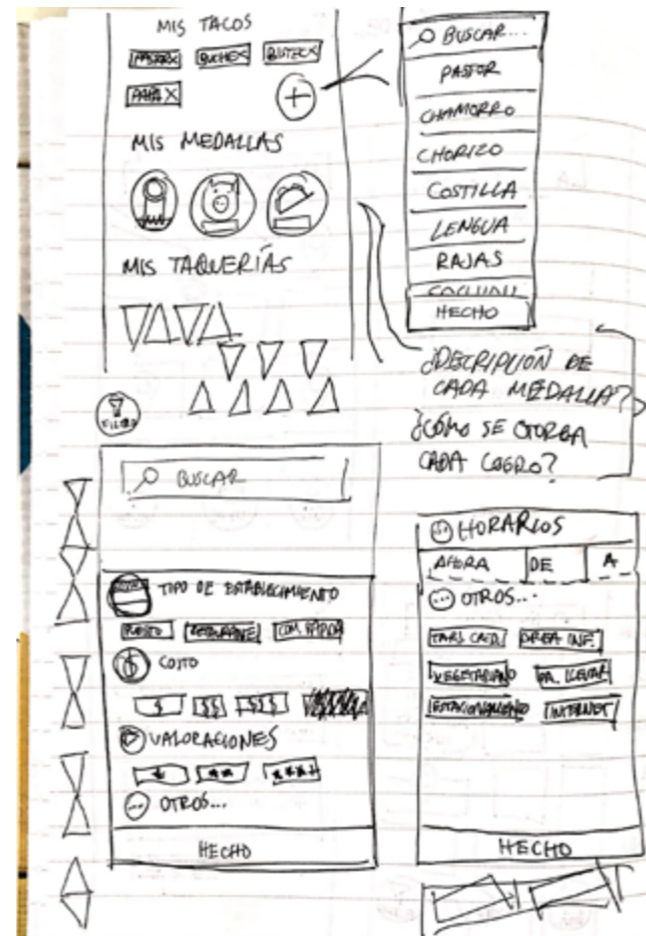 MIS TACOS
PASTOR X BUCHE X BISTEC X
PAPA X
+
MIS MEDALLAS
MIS TAQUERÍAS
BUSCAR...
PASTOR
CHAMORRO
CHORIZO
COSTILLA
LENGUA
RAJAS
HECHO
¿DESCRIPCIÓN DE
CADA MEDALLA?
¿CÓMO SE OTORGA
CADA LOGRO?
FILTRO
BUSCAR
TIPO DE ESTABLECIMIENTO
PUESTO RESTAURANTE COM. RÁPIDA
$ COSTO
$ $$ $$$
VALORACIONES
★ ★★ ★★★
OTROS...
HECHO
HORARIOS
AHORA DE A
OTROS...
TARJ. CRED. AREA INF.
VEGETARIANO PA. LLEVAR
ESTACIONAMIENTO INTERNET
HECHO